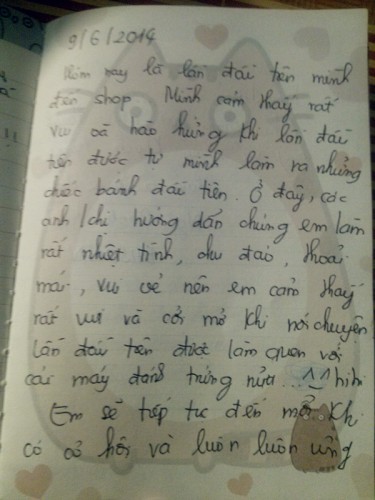 9/6/2014
Hôm nay là lần đầu tiên mình
đến shop. Mình cảm thấy rất
vui và hào hứng khi lần đầu
tiên được tự mình làm ra những
chiếc bánh đầu tiên. Ở đây, các
anh/chị hướng dẫn chúng em làm
rất nhiệt tình, chu đáo, thoải
mái, vui vẻ nên em cảm thấy
rất vui và cởi mở khi nói chuyện
Lần đầu tiên được làm quen với
cái máy đánh trứng nữa...^^ hihi
Em sẽ tiếp tục đến mỗi khi
có cơ hội và luôn luôn ủng